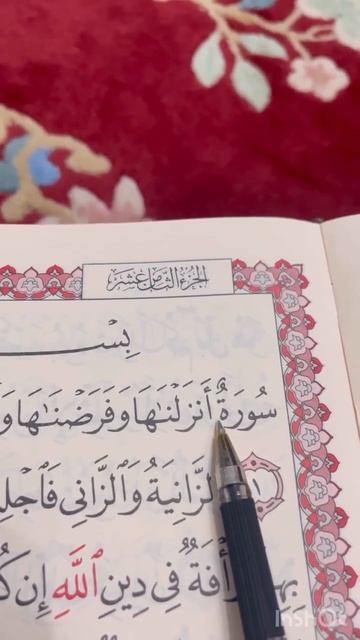 الجزء الثامن عشر
بسـ
سُورَةٌ أَنزَلۡنَٰهَا وَفَرَضۡنَٰهَا وَ
١ ٱلزَّانِيَةُ وَٱلزَّانِي فَٱجۡلِ
رَأۡفَةٞ فِي دِينِ ٱللَّهِ إِن كُ
InShot